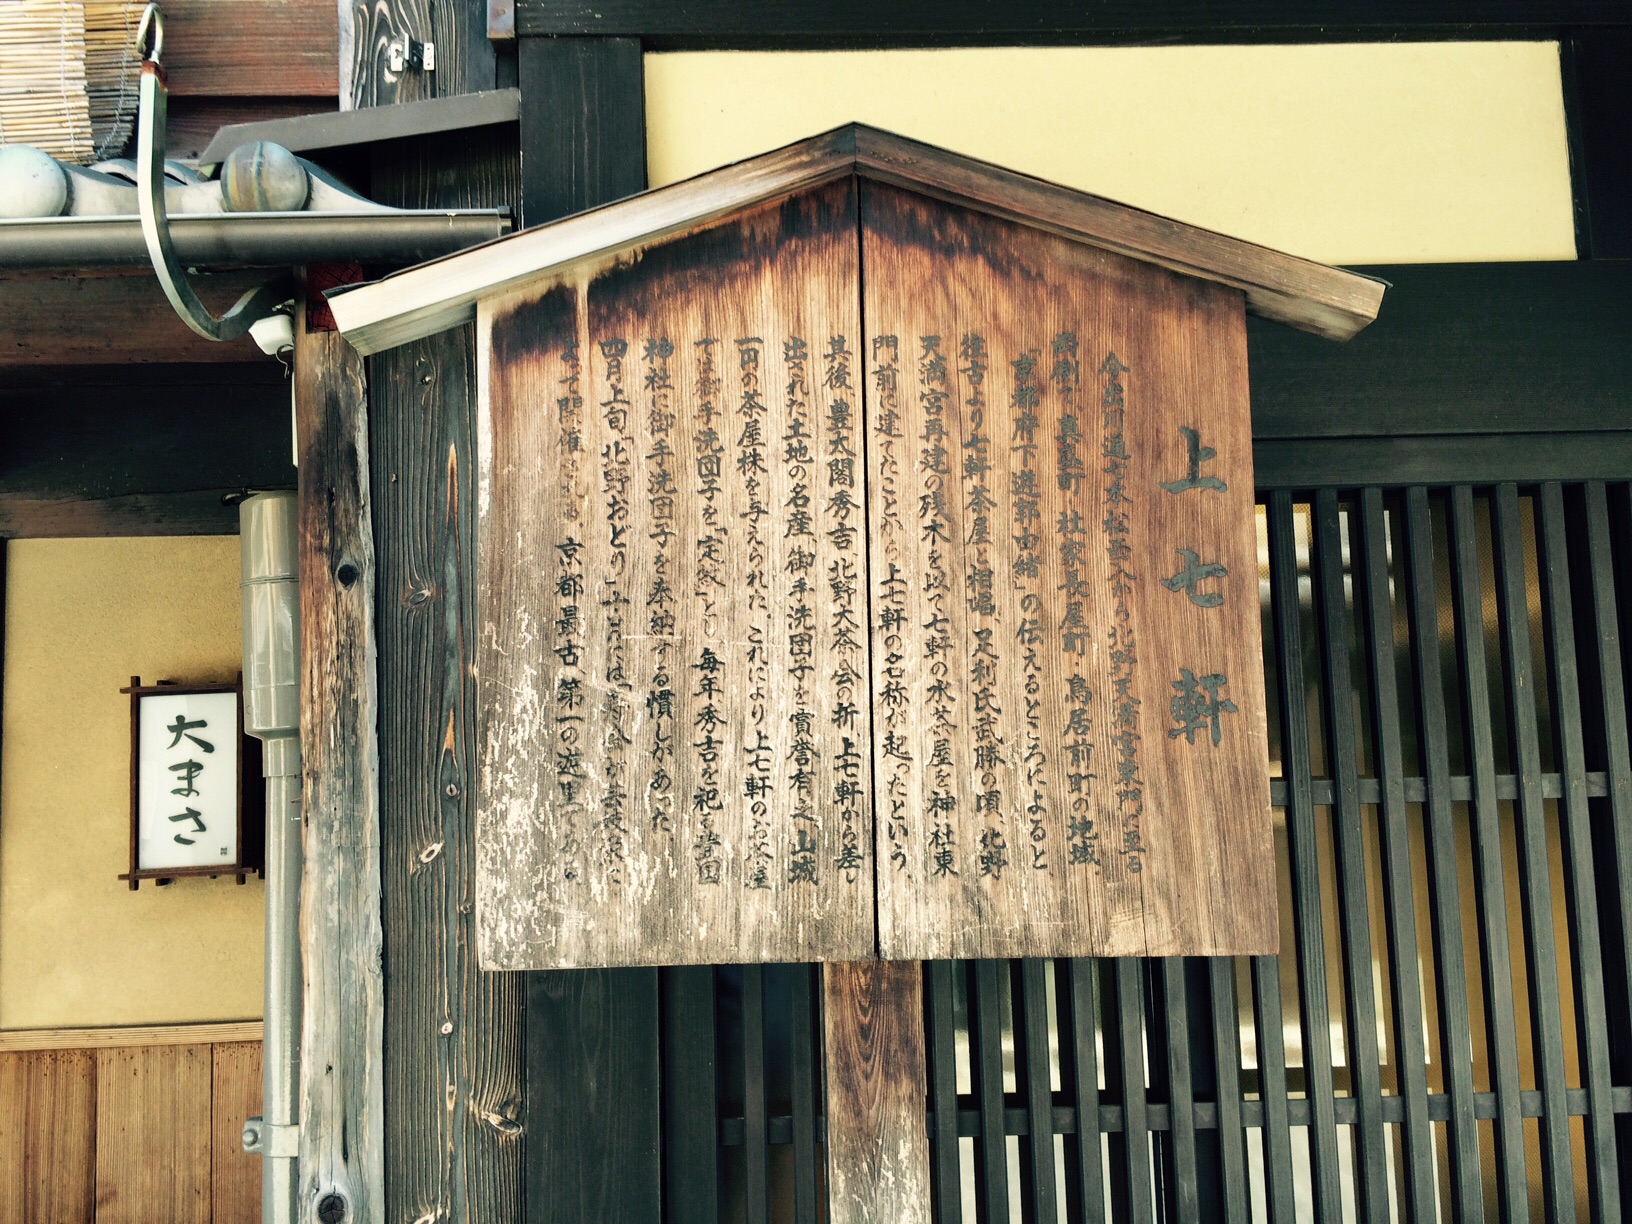 上七軒
今出川通七本松西入から北野天満宮東門に至る
両側で、真盛町・社家長屋町・鳥居前町の地域、
「京都府下遊郭由緒」の伝えるところによると、
往古より七軒茶屋と相唱、足利氏武勝の頃、北野
天満宮再建の残木を以て七軒の水茶屋を神社東
門前に建てたことから、上七軒の名称が起ったという。
其後、豊太閤秀吉、北野大茶会の折、上七軒から差し
出された土地の名産、御手洗団子を賞誉有之、山城
一円の茶屋株を与えられた。これにより上七軒のお茶屋
では御手洗団子を「定紋」とし、毎年秀吉を祀る豊国
神社に御手洗団子を奉納する慣しがあった。
四月上旬「北野おどり」には「寿会」が芸妓衆に
よって開催される、京都最古第一の遊里である。
大まさ